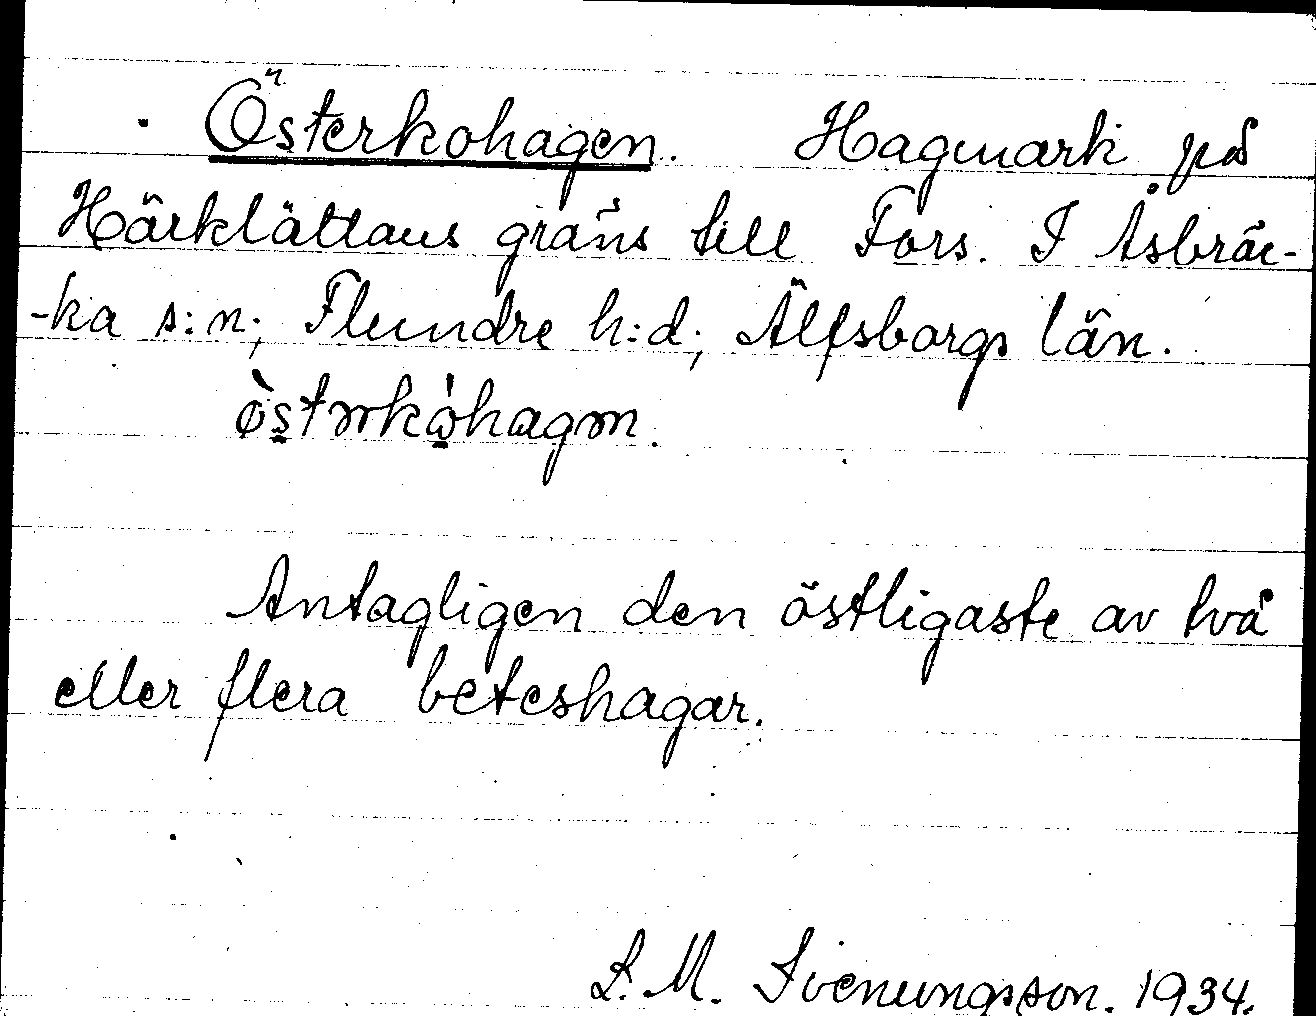 Österkohagen. Hagmark på
Härklättans gräns till Fors. I Åsbräc-
-ka s:n; Flundre h:d; Älfsborgs län.
Antagligen den östligaste av två
eller flera beteshagar.
L. M. Svenungsson. 1934.